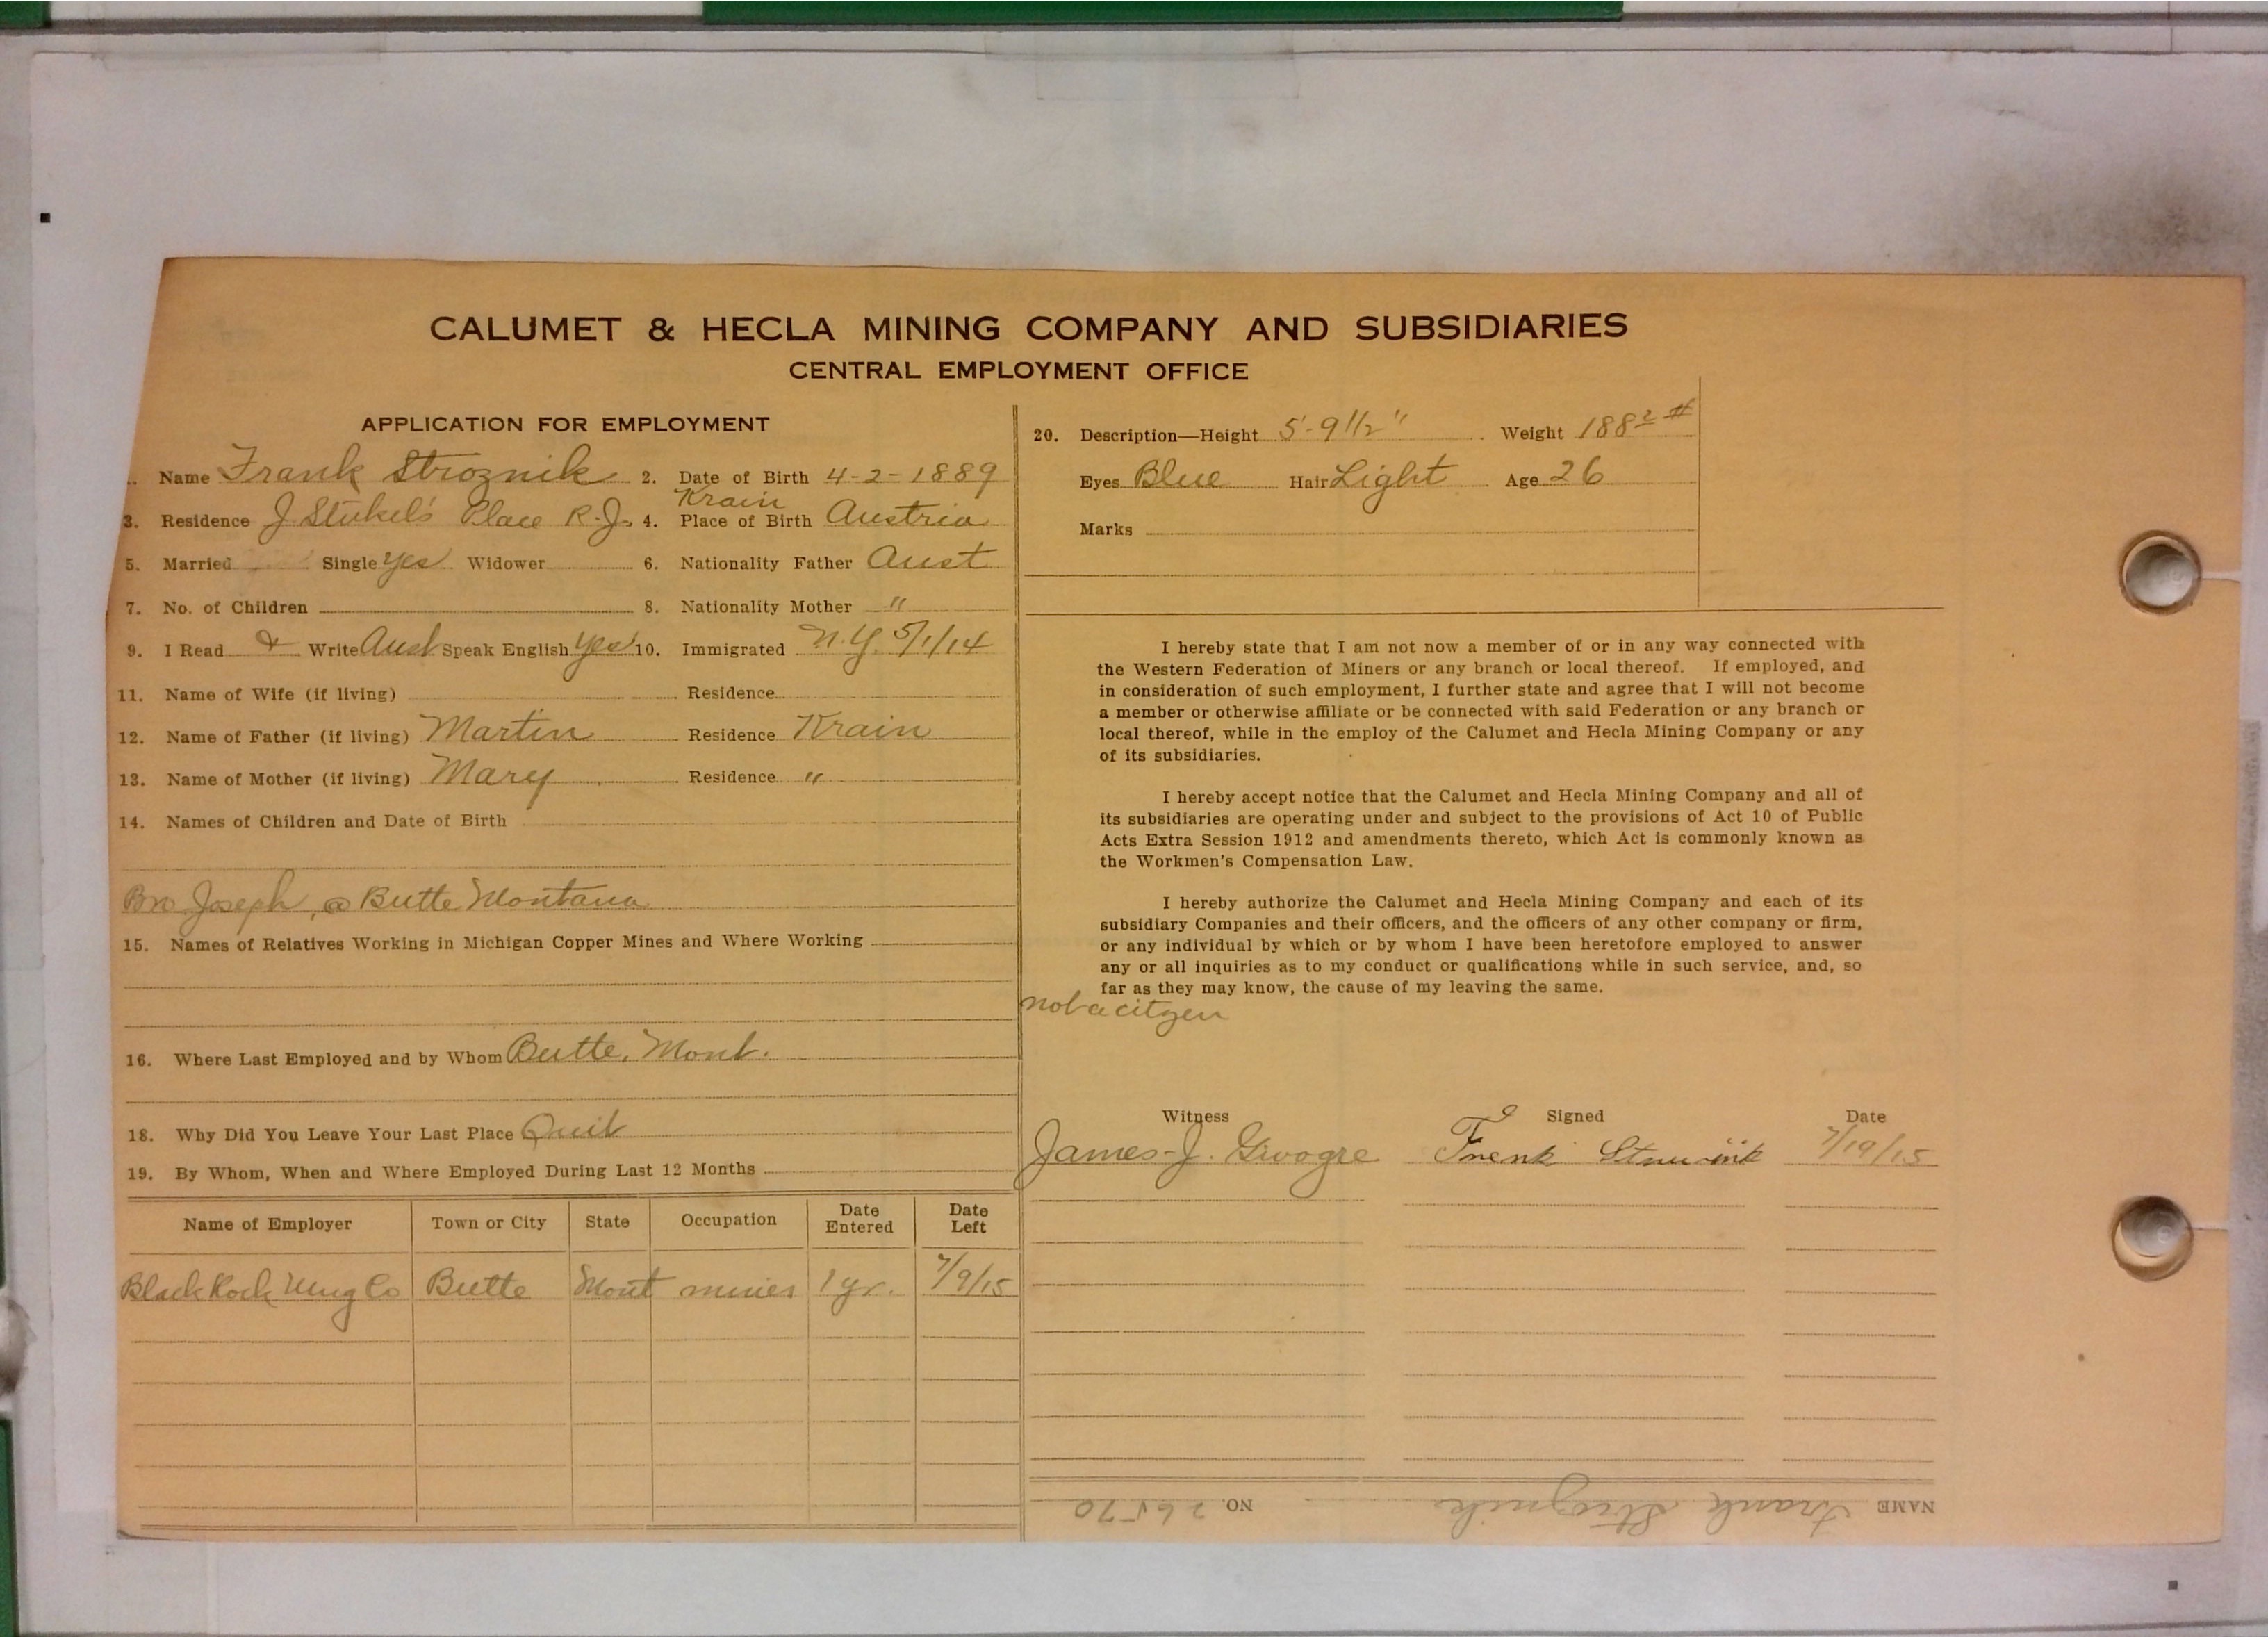 CALUMET & HECLA MINING COMPANY AND SUBSIDIARIES
CENTRAL EMPLOYMENT OFFICE
APPLICATION FOR EMPLOYMENT
Name Frank Stroznik 2. Date of Birth 4-2-1889
Krain
3. Residence J Stukel's Place R.J. 4. Place of Birth Austria
5. Married Single Yes Widower 6. Nationality Father Aust
7. No. of Children 8. Nationality Mother "
9. I Read & Write Aust Speak English Yes 10. Immigrated N.Y. 5/1/14
11. Name of Wife (if living) Residence
12. Name of Father (if living) Martin Residence Krain
13. Name of Mother (if living) Mary Residence "
14. Names of Children and Date of Birth
Bro Joseph, @ Butte Montana
15. Names of Relatives Working in Michigan Copper Mines and Where Working
16. Where Last Employed and by Whom Butte, Mont.
18. Why Did You Leave Your Last Place Quit
19. By Whom, When and Where Employed During Last 12 Months
Name of Employer Town or City State Occupation Date Entered Date Left
Black Rock Mng Co Butte Mont miner 1 yr. 7/9/15
20. Description—Height 5'-9 1/2" Weight 188 #
Eyes Blue Hair Light Age 26
Marks
I hereby state that I am not now a member of or in any way connected with
the Western Federation of Miners or any branch or local thereof. If employed, and
in consideration of such employment, I further state and agree that I will not become
a member or otherwise affiliate or be connected with said Federation or any branch or
local thereof, while in the employ of the Calumet and Hecla Mining Company or any
of its subsidiaries.
I hereby accept notice that the Calumet and Hecla Mining Company and all of
its subsidiaries are operating under and subject to the provisions of Act 10 of Public
Acts Extra Session 1912 and amendments thereto, which Act is commonly known as
the Workmen's Compensation Law.
I hereby authorize the Calumet and Hecla Mining Company and each of its
subsidiary Companies and their officers, and the officers of any other company or firm,
or any individual by which or by whom I have been heretofore employed to answer
any or all inquiries as to my conduct or qualifications while in such service, and, so
far as they may know, the cause of my leaving the same.
not a citzen
Witness Signed Date
James J. Frenk 7/19/15
NAME Frank Stroznik NO. 26570